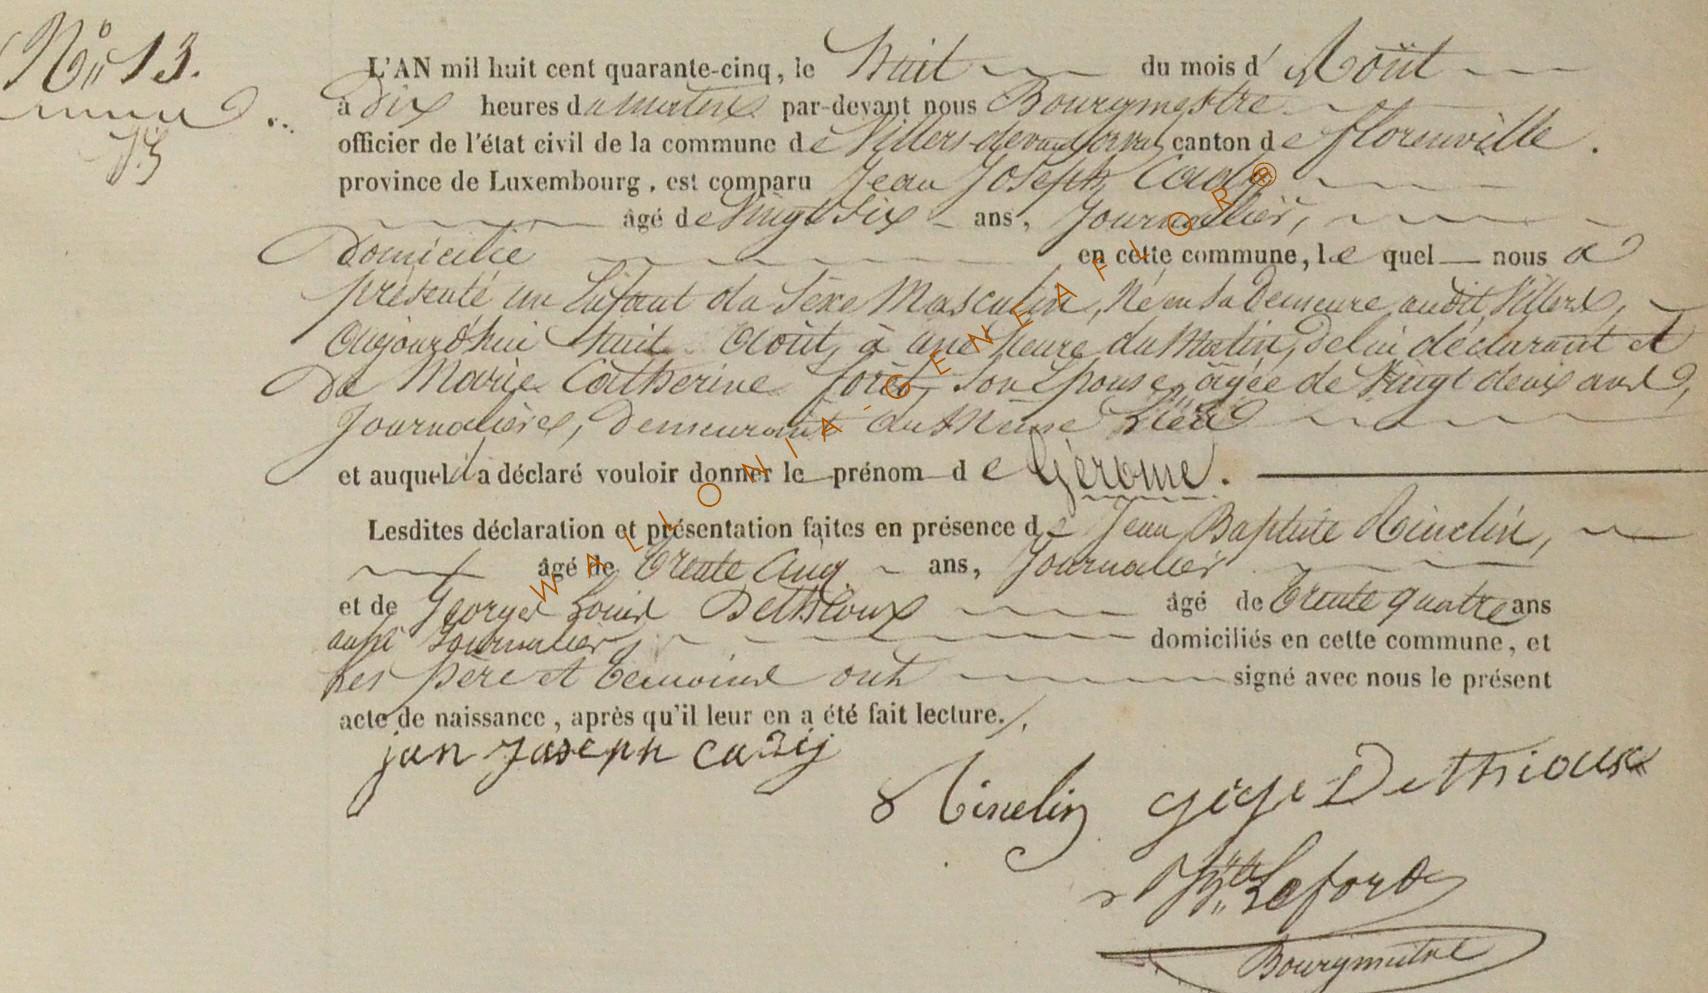 N° 13.
L'AN mil huit cent quarante-cinq, le huit du mois d'Août
à Dix heures du matin par-devant nous Bourgmestre
officier de l'état civil de la commune de Villers-devant-orval canton de florenville.
province de Luxembourg, est comparu Jean Joseph Cady
âgé de Vingt Six ans, Journalier,
Domicilié en cette commune, le quel nous a
présenté un Enfant du Sexe Masculin, Né en Sa Demeure audit Villers,
Aujourd'hui huit Août, à une heure du Matin, de lui déclarant et
De Marie Catherine forêt, Son Epouse, âgée de Vingt deux ans,
Journalière, Demeurant au Même Lieu
et auquel il a déclaré vouloir donner le prénom de Gérome.
Lesdites déclaration et présentation faites en présence de Jean Baptiste
âgé de trente Cinq ans, Journalier
et de Georges Louis Dethioux âgé de trente quatre ans
aussi Journalier, domiciliés en cette commune, et
Les père et témoins ont signé avec nous le présent
acte de naissance, après qu'il leur en a été fait lecture.
jan Joseph cadij
Dethioux
Lefort
Bourgmestre
WALLONIA-GENEAFLOR®